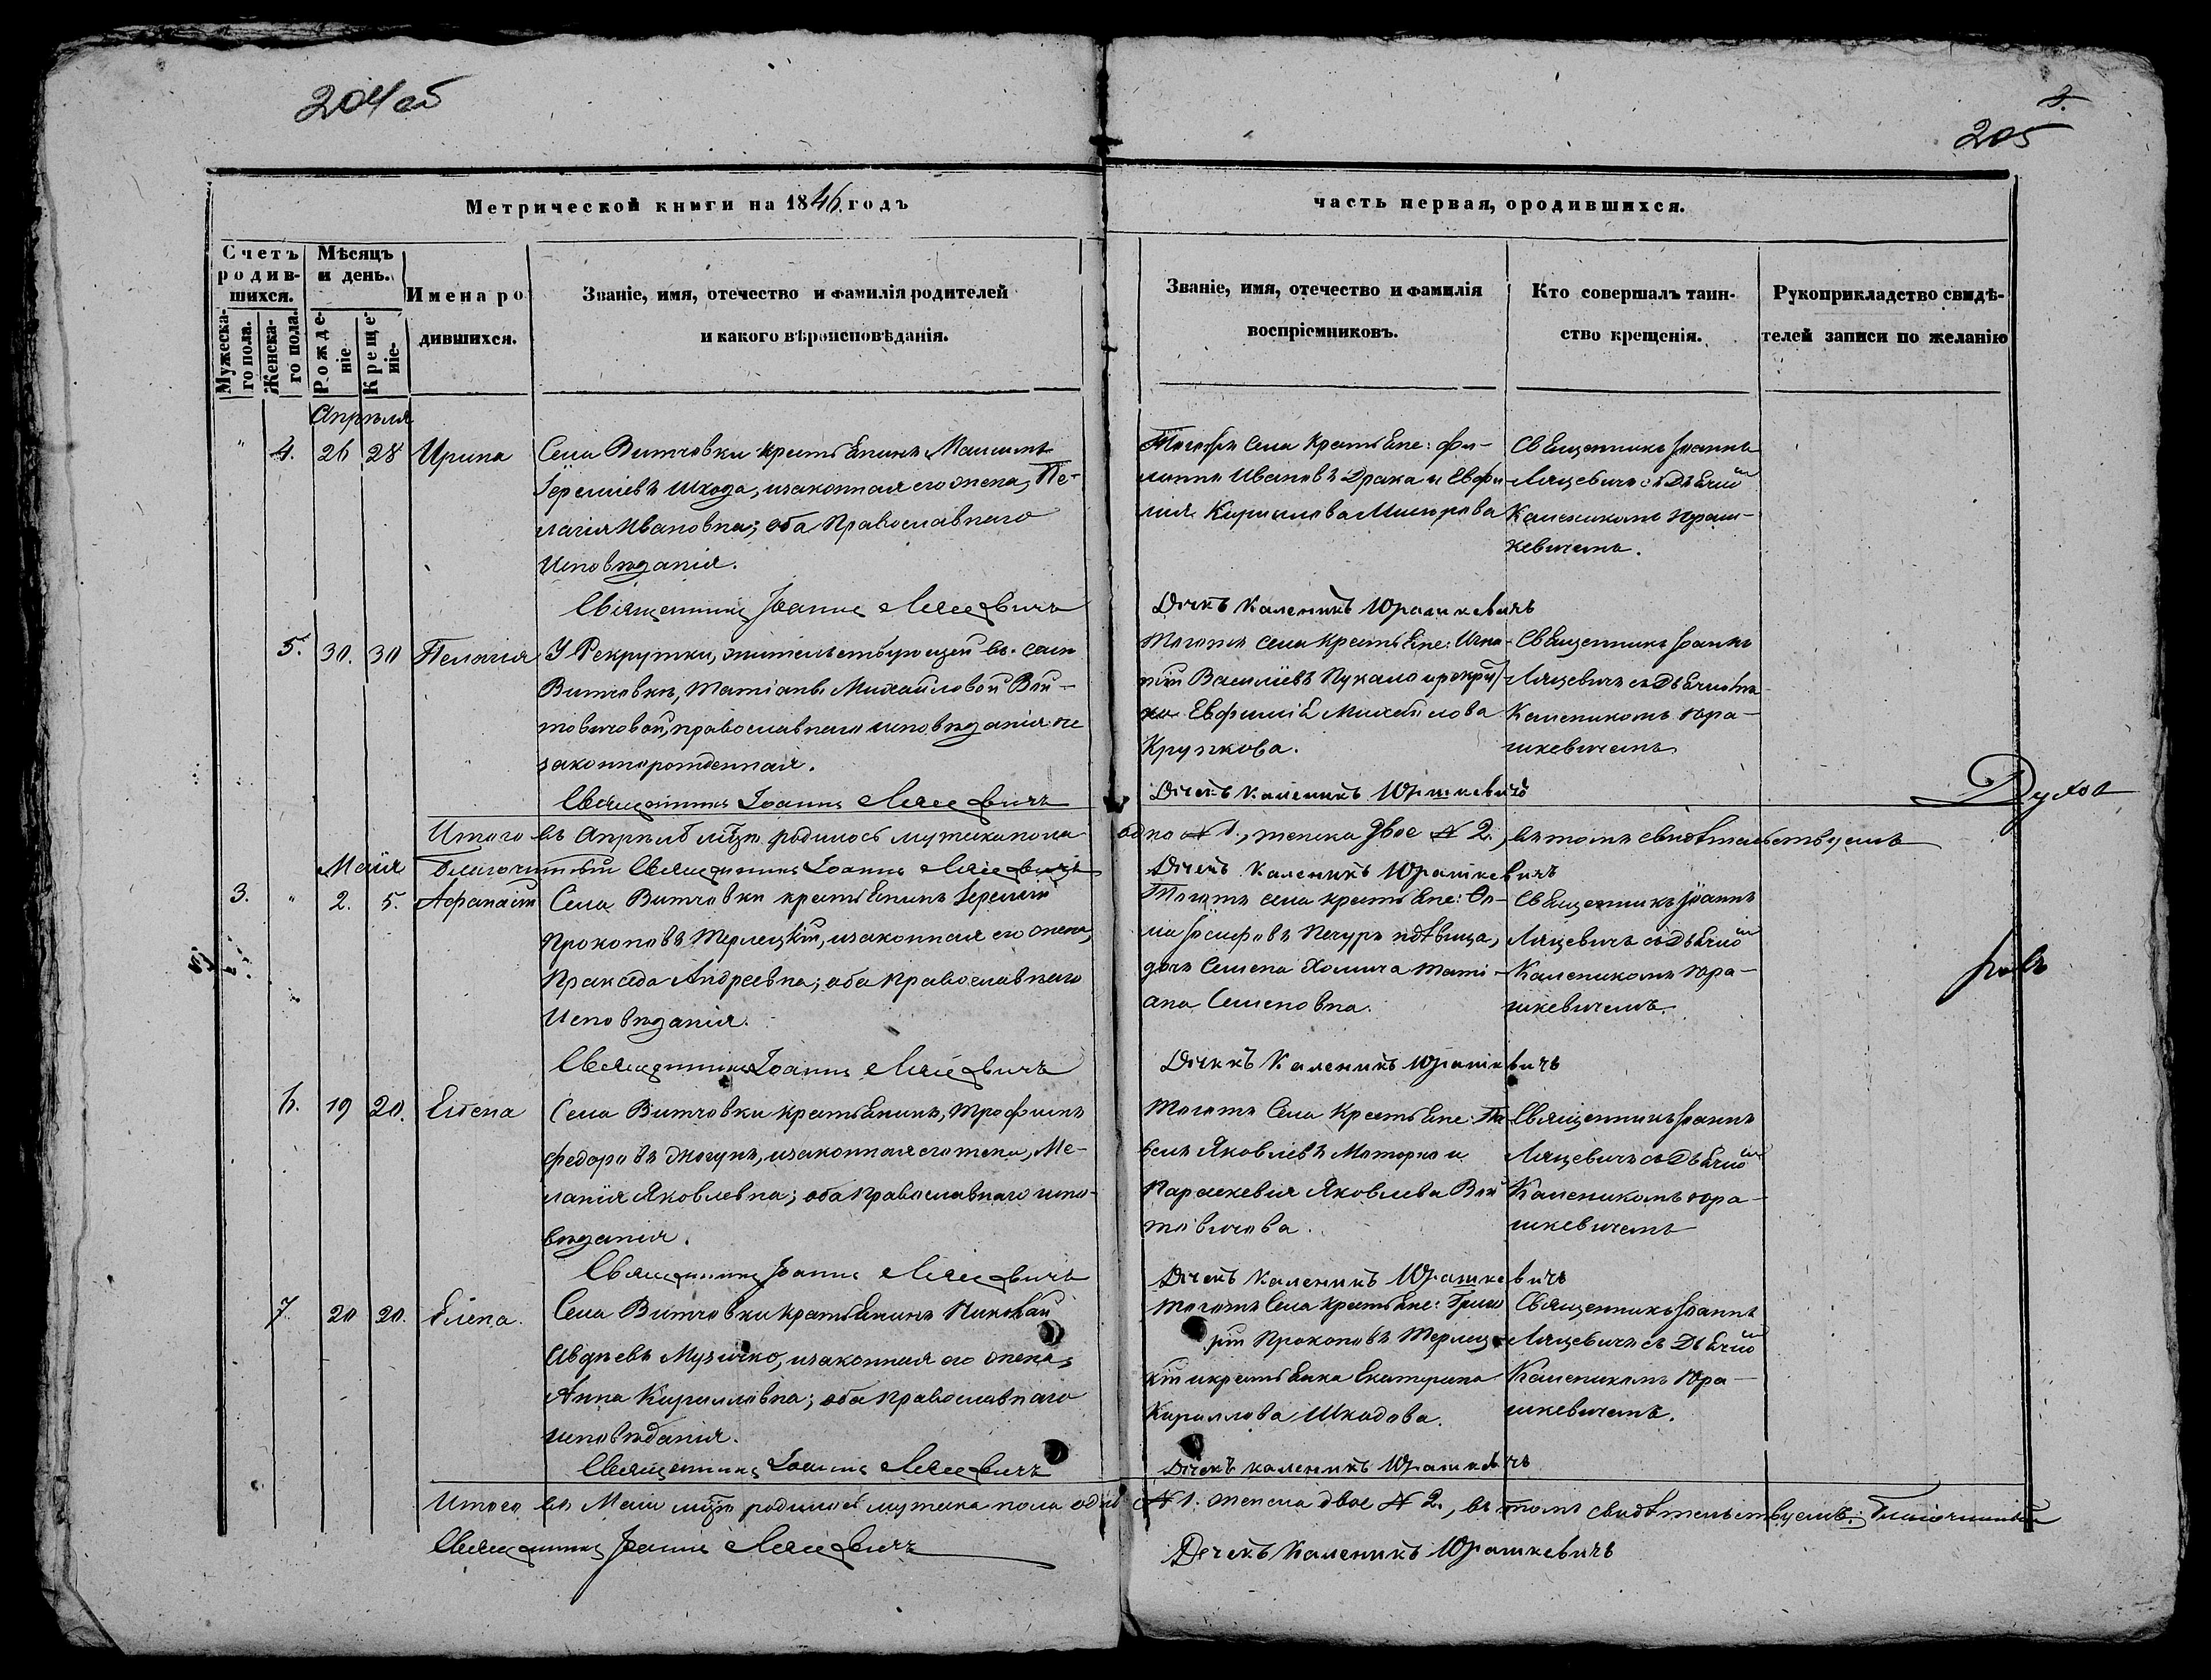 204 об
3.
205
Метрической книги на 1846 годъ
часть первая, ородившихся.
Счетъ родив-шихся.
Мужеска-го пола.
Женска-го пола.
Мѣсяцъ и день.
Рожде-ніе
Креще-ніе.
Имена ро
дившихся.
Званіе, имя, отечество и фамилія родителей
и какого вѣроисповѣданія.
Званіе, имя, отечество и фамилія
воспріемниковъ.
Кто совершалъ таин-
ство крещенія.
Рукоприкладство свидѣ-
телей записи по желанію
Апрѣля
" 4. 26 28 Ирина
Села Витчовки крестьянинъ Максимъ
Іереміевъ Шкода, изаконная его жена, Пе-
лагія Ивановна; оба Православнаго
Исповѣданія.
Священникъ Іоаннъ Ляцевичъ
Тогожъ села крестьяне: Фи-
липпъ Ивановъ Драка и Евфи-
мія Кириллова
Священникъ Іоаннъ
Ляцевичъ съ Дьячко
Калеником Юраш-
кевичемъ.
Дячекъ Каленикъ Юрашкевичъ
5. 30. 30 Пелагія
У Рекрутки, жительствующей въ селе
Витчовкѣ, Татіаны Михайловой Вой-
товичовой, православнаго исповѣданія не
законнорожденная.
Священникъ Іоаннъ Ляцевичъ
Тогожъ села крестьяне: Игна-
тій Василіевъ Пукало ирекрут
ка Евфимія Михайлова
Крупкова.
Священникъ Іоаннъ
Ляцевичъ съ Дьячкомъ
Калеником Юра-
шкевичемъ
Дячекъ Каленикъ Юрашкевичъ
Духов
Итого въ Апрѣлѣ мцѣ родилось мужеска пола одно № 1., женска двое № 2., въ томъ свидѣтельствуемъ
Благочинный Священникъ Іоаннъ Ляцевичъ
Дячекъ Каленикъ Юрашкевичъ
Маія
3. " 2. 5. Афанасій
Села Витчовки крестьянинъ Іеремій
Прокоповъ Терлецкій, изаконная его жена,
Праксида Андреевна; оба Православнаго
Исповѣданія.
Священникъ Іоаннъ Ляцевичъ
Тогожъ села крестьяне: Фо-
ма Іосифовъ Печуръ идѣвица,
дочь Семена Хомича Тати-
ана Семеновна.
Священникъ Іоаннъ
Ляцевичъ съ Дьячко
Калеником Юра-
шкевичемъ.
Дячекъ Каленикъ Юрашкевичъ
6. 19 20. Елена
Села Витчовки крестьянинъ, Трофимъ
Федоровъ Жогунъ, изаконная его жена, Ме-
ланія Яковлевна; оба православнаго испо-
вѣданія.
Священникъ Іоаннъ Ляцевичъ
Тогожъ Села Крестьяне: Па-
велъ Яковлевъ Моторко и
Параскевія Яковлева Вой
товичова.
Священникъ Іоаннъ
Ляцевичъ съ Дьячко
Калеником Юра-
шкевичемъ
Дячекъ Каленикъ Юрашкевичъ
7. 20 20. Елена.
Села Витчовки крестьянинъ Николай
Авдѣевъ Музычко, изаконная его жена,
Анна Кирилловна; оба Православнаго
исповѣданія.
Священникъ Іоаннъ Ляцевичъ
Тогожъ Села крестьяне: Григо
рій Прокоповъ Терлец-
кій икрестьянка Екатерина
Кириллова Шкодова.
Священникъ Іоаннъ
Ляцевичъ съ Дьячко
Калеником Юра-
шкевичемъ.
Дячекъ Каленикъ Юрашкевичъ
Итого въ Маіи мцѣ родилось мужеска пола одно № 1. женска двое № 2., въ томъ свидѣтельствуемъ: Благочинный
Священникъ Іоаннъ Ляцевичъ
Дячекъ Каленикъ Юрашкевичъ